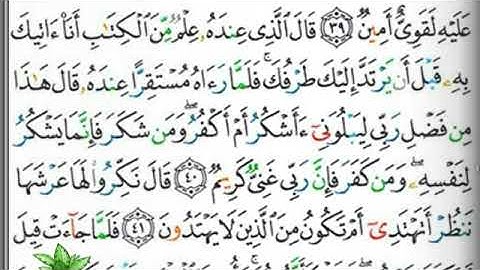 عَلَيْهِ لَقَوِىٌّ أَمِينٌ ٣٩ قَالَ ٱلَّذِى عِندَهُۥ عِلْمٌ مِّنَ ٱلْكِتَٰبِ أَنَا۠ ءَاتِيكَ
بِهِۦ قَبْلَ أَن يَرْتَدَّ إِلَيْكَ طَرْفُكَ ۚ فَلَمَّا رَءَاهُ مُسْتَقِرًّا عِندَهُۥ قَالَ هَٰذَا
مِن فَضْلِ رَبِّى لِيَبْلُوَنِىٓ ءَأَشْكُرُ أَمْ أَكْفُرُ ۖ وَمَن شَكَرَ فَإِنَّمَا يَشْكُرُ
لِنَفْسِهِۦ ۖ وَمَن كَفَرَ فَإِنَّ رَبِّى غَنِىٌّ كَرِيمٌ ٤٠ قَالَ نَكِّرُوا۟ لَهَا عَرْشَهَا
نَنظُرْ أَتَهْتَدِىٓ أَمْ تَكُونُ مِنَ ٱلَّذِينَ لَا يَهْتَدُونَ ٤١ فَلَمَّا جَآءَتْ قِيلَ